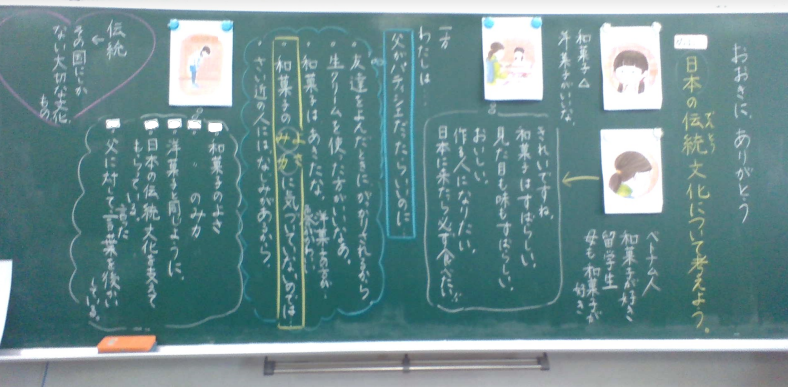 おおきに、ありがとう
日本の伝統文化について考えよう。
でんとう
和菓子△
洋菓子がいいな。
ベトナム人
和菓子が好き
留学生
母も和菓子が
好き
きれいですね。
和菓子はすばらしい。
見た目も味もすばらしい。
おいしい。
作る人になりたい。
日本に来たら必ず食べたい。
一方
わたしは…
父がパティシエだったらいいのに
・友達をよんだときにがっかりされるから
・生クリームを使った方がいいなあ。
・和菓子はあきたな。
洋菓子の方が
・和菓子のよさ
みか
に気づいていないのでは
・さい近の人にはなじみがあるから。
和菓子のよさ
のみか
洋菓子と同じように、
日本の伝統文化を考えて
もらっている。
父に対して言った言葉を後かい
している。
伝統
←
その国にしか
ない大切な文化
もの